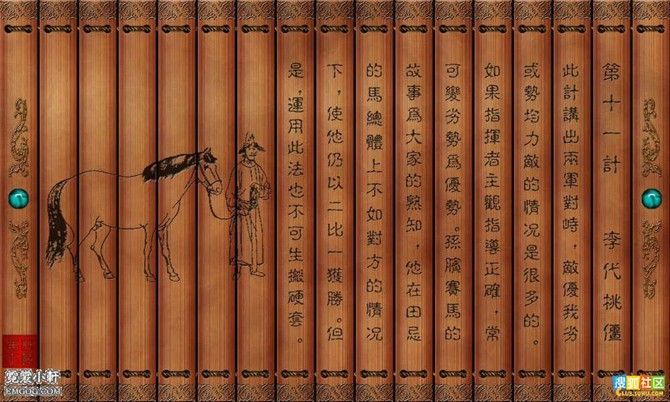 第十一計 李代桃僵
此計講出兩軍對峙，敵優我劣
或勢均力敵的情况是很多的。
如果指揮者主觀指導正確，常
可變劣勢爲優勢。孫臏賽馬的
故事爲大家的熟知，他在田忌
的馬總體上不如對方的情况
下，使他仍以二比一獲勝。但
是，運用此法也不可生搬硬套。
霓裳小軒
EMGOG.COM
搜狐社区
CLUB.SOHU.COM